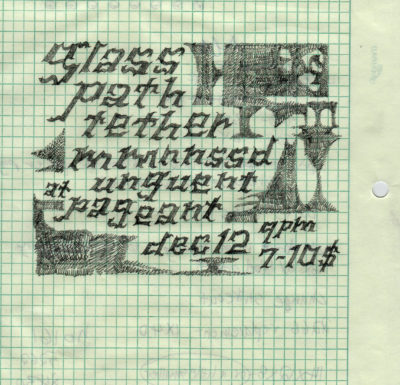 glass
path
tether
mrmnnssd
unguent
at pageant
dec 12 9pm
7-10$